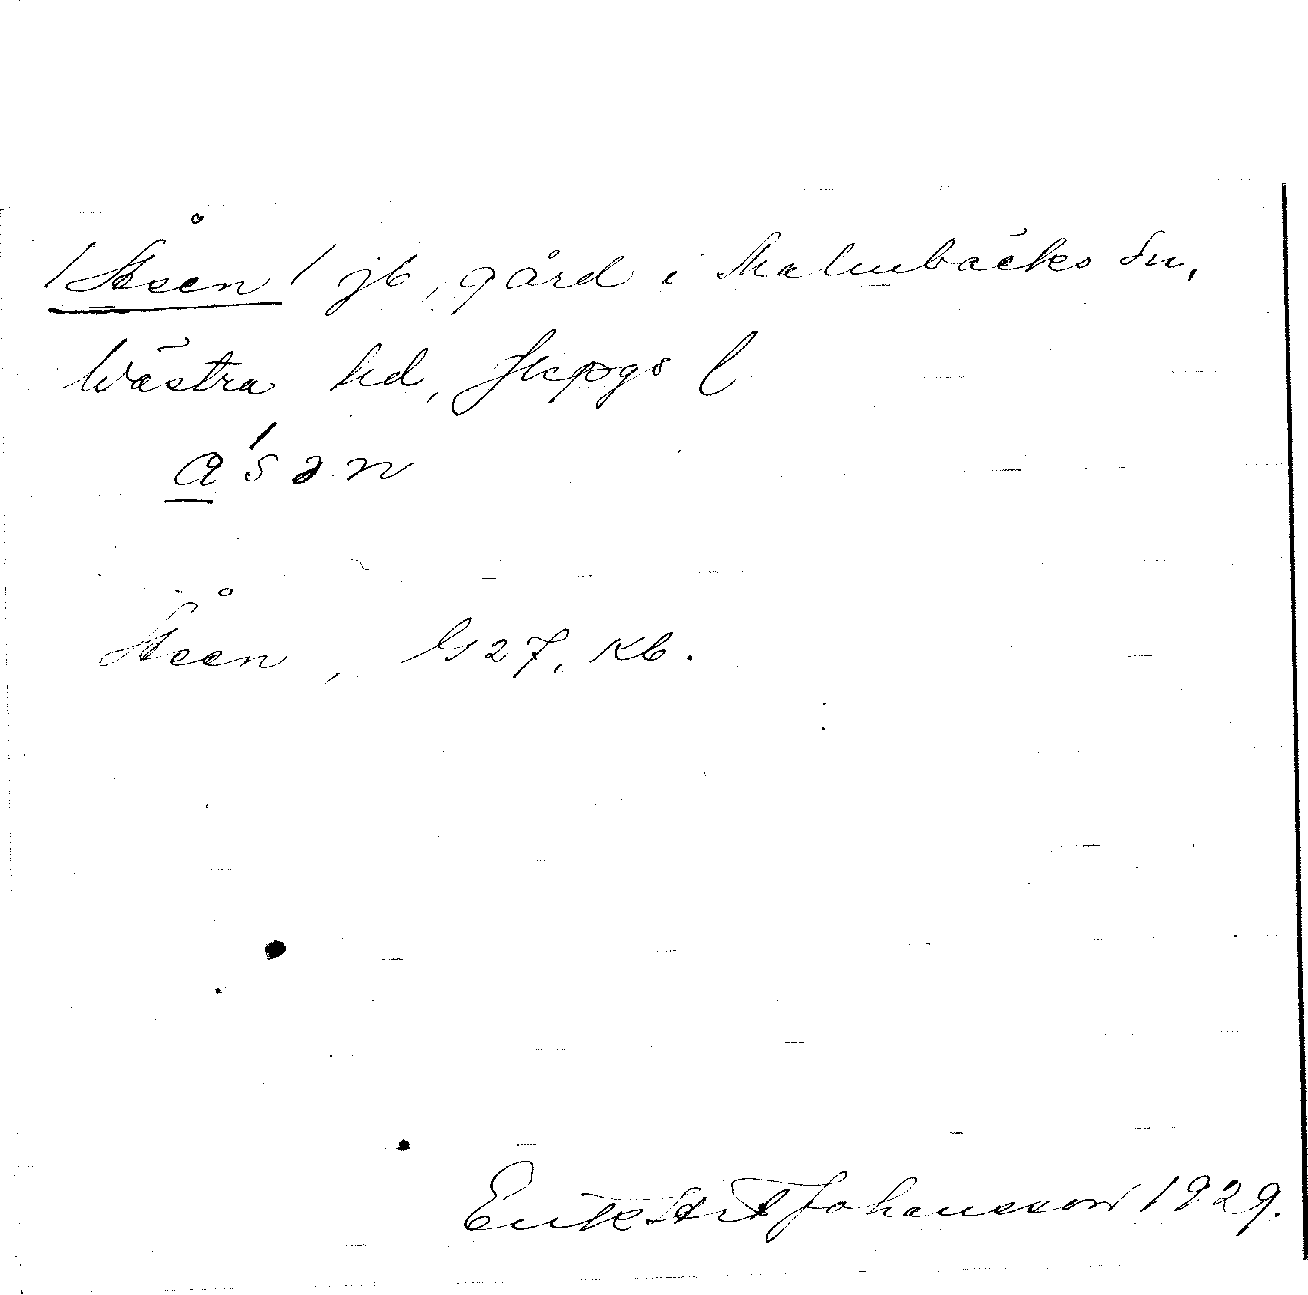 /Åsen/ jb, gård i Malmbäcks sn,
Västra hd, Jkpgs l
a'sən
Åsen, G27, Kb.
Johansson 1929.